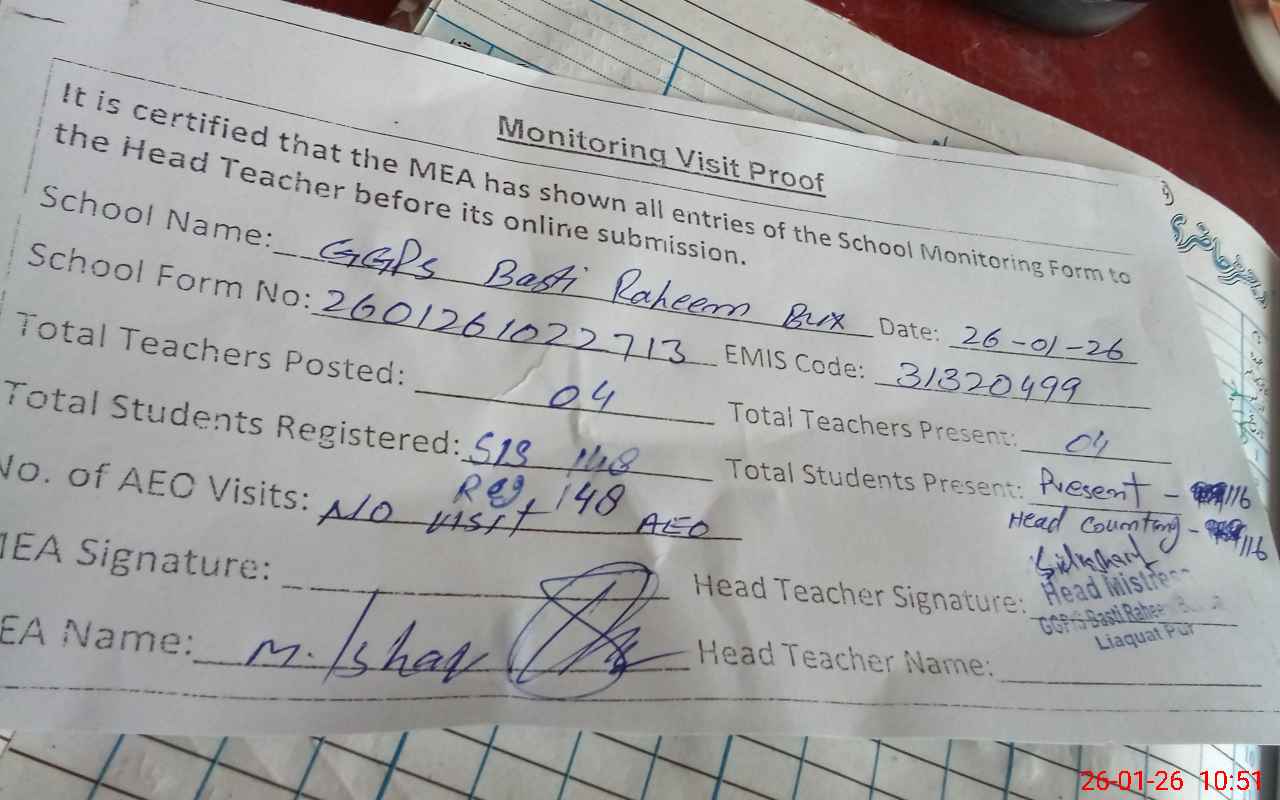 Monitoring Visit Proof
It is certified that the MEA has shown all entries of the School Monitoring Form to
the Head Teacher before its online submission.
School Name: GGPS Basti Raheem Bux Date: 26-01-26
School Form No: 2601261022713 EMIS Code: 31320499
Total Teachers Posted: 04 Total Teachers Present: 04
Total Students Registered: SIS 148 Total Students Present: Present - 116
Reg. 148 Head Counting - 116
No. of AEO Visits: NO VISIT AEO
MEA Signature: Head Teacher Signature:
Head Mistress
GGPS Basti Raheem
Liaquat Pur
EA Name: M. Ishaq Head Teacher Name:
26-01-26 10:51